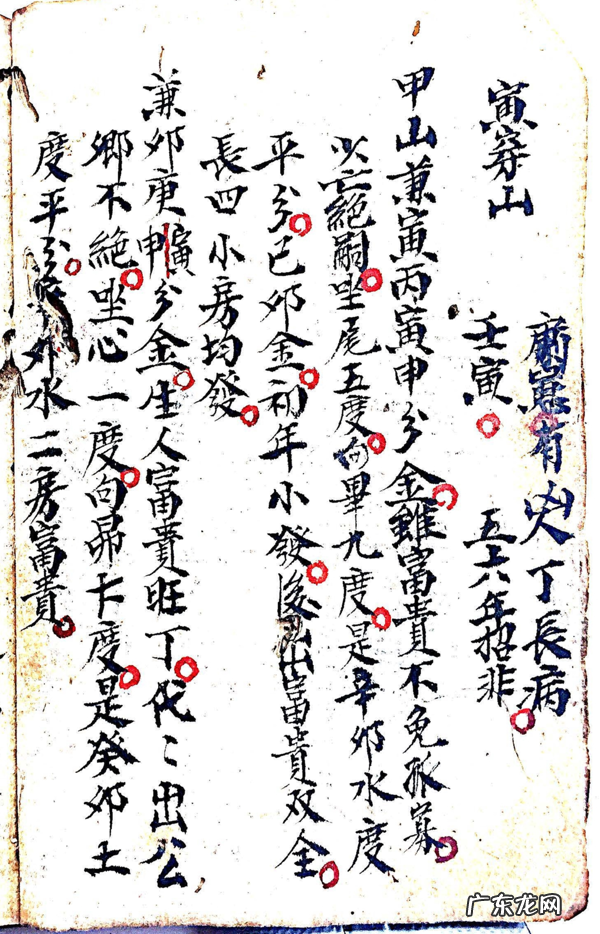 寅穿山
有凶人丁長病
壬寅 五十六年招非
甲山兼寅丙寅申分金雖富貴不免孤寡
以亡絕嗣坐尾五度向畢九度是辛卯水度
平分己卯金初年小發後出富貴双全
長四小房均發
兼卯庚寅申分金生人富貴旺丁代〻出公
鄉不絕坐心一度向昴七度是癸卯土
度平分卯水二房富貴
广东龙网